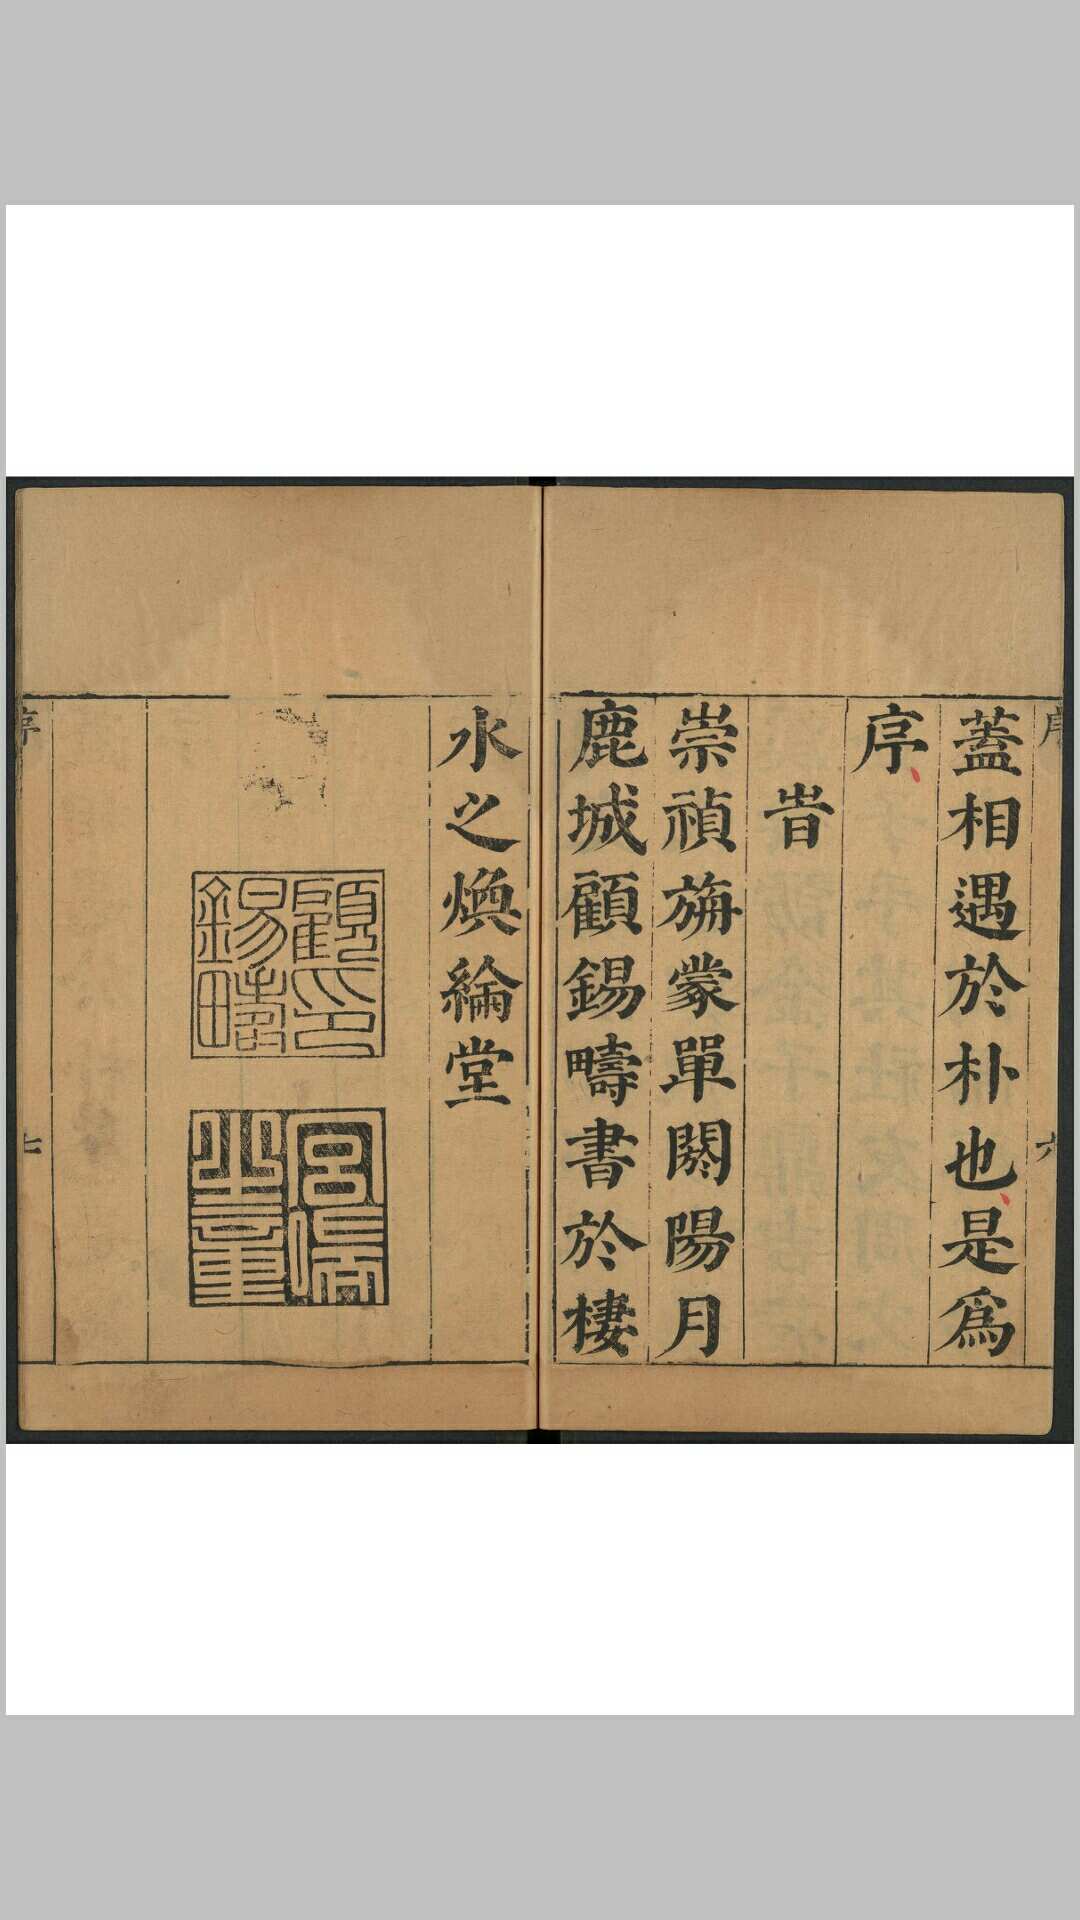 蓋相遇於朴也是爲
序
旹
崇禎旃蒙單閼陽月
鹿城顧錫疇書於棲
水之煥綸堂
顧印錫疇
序
六
序
七